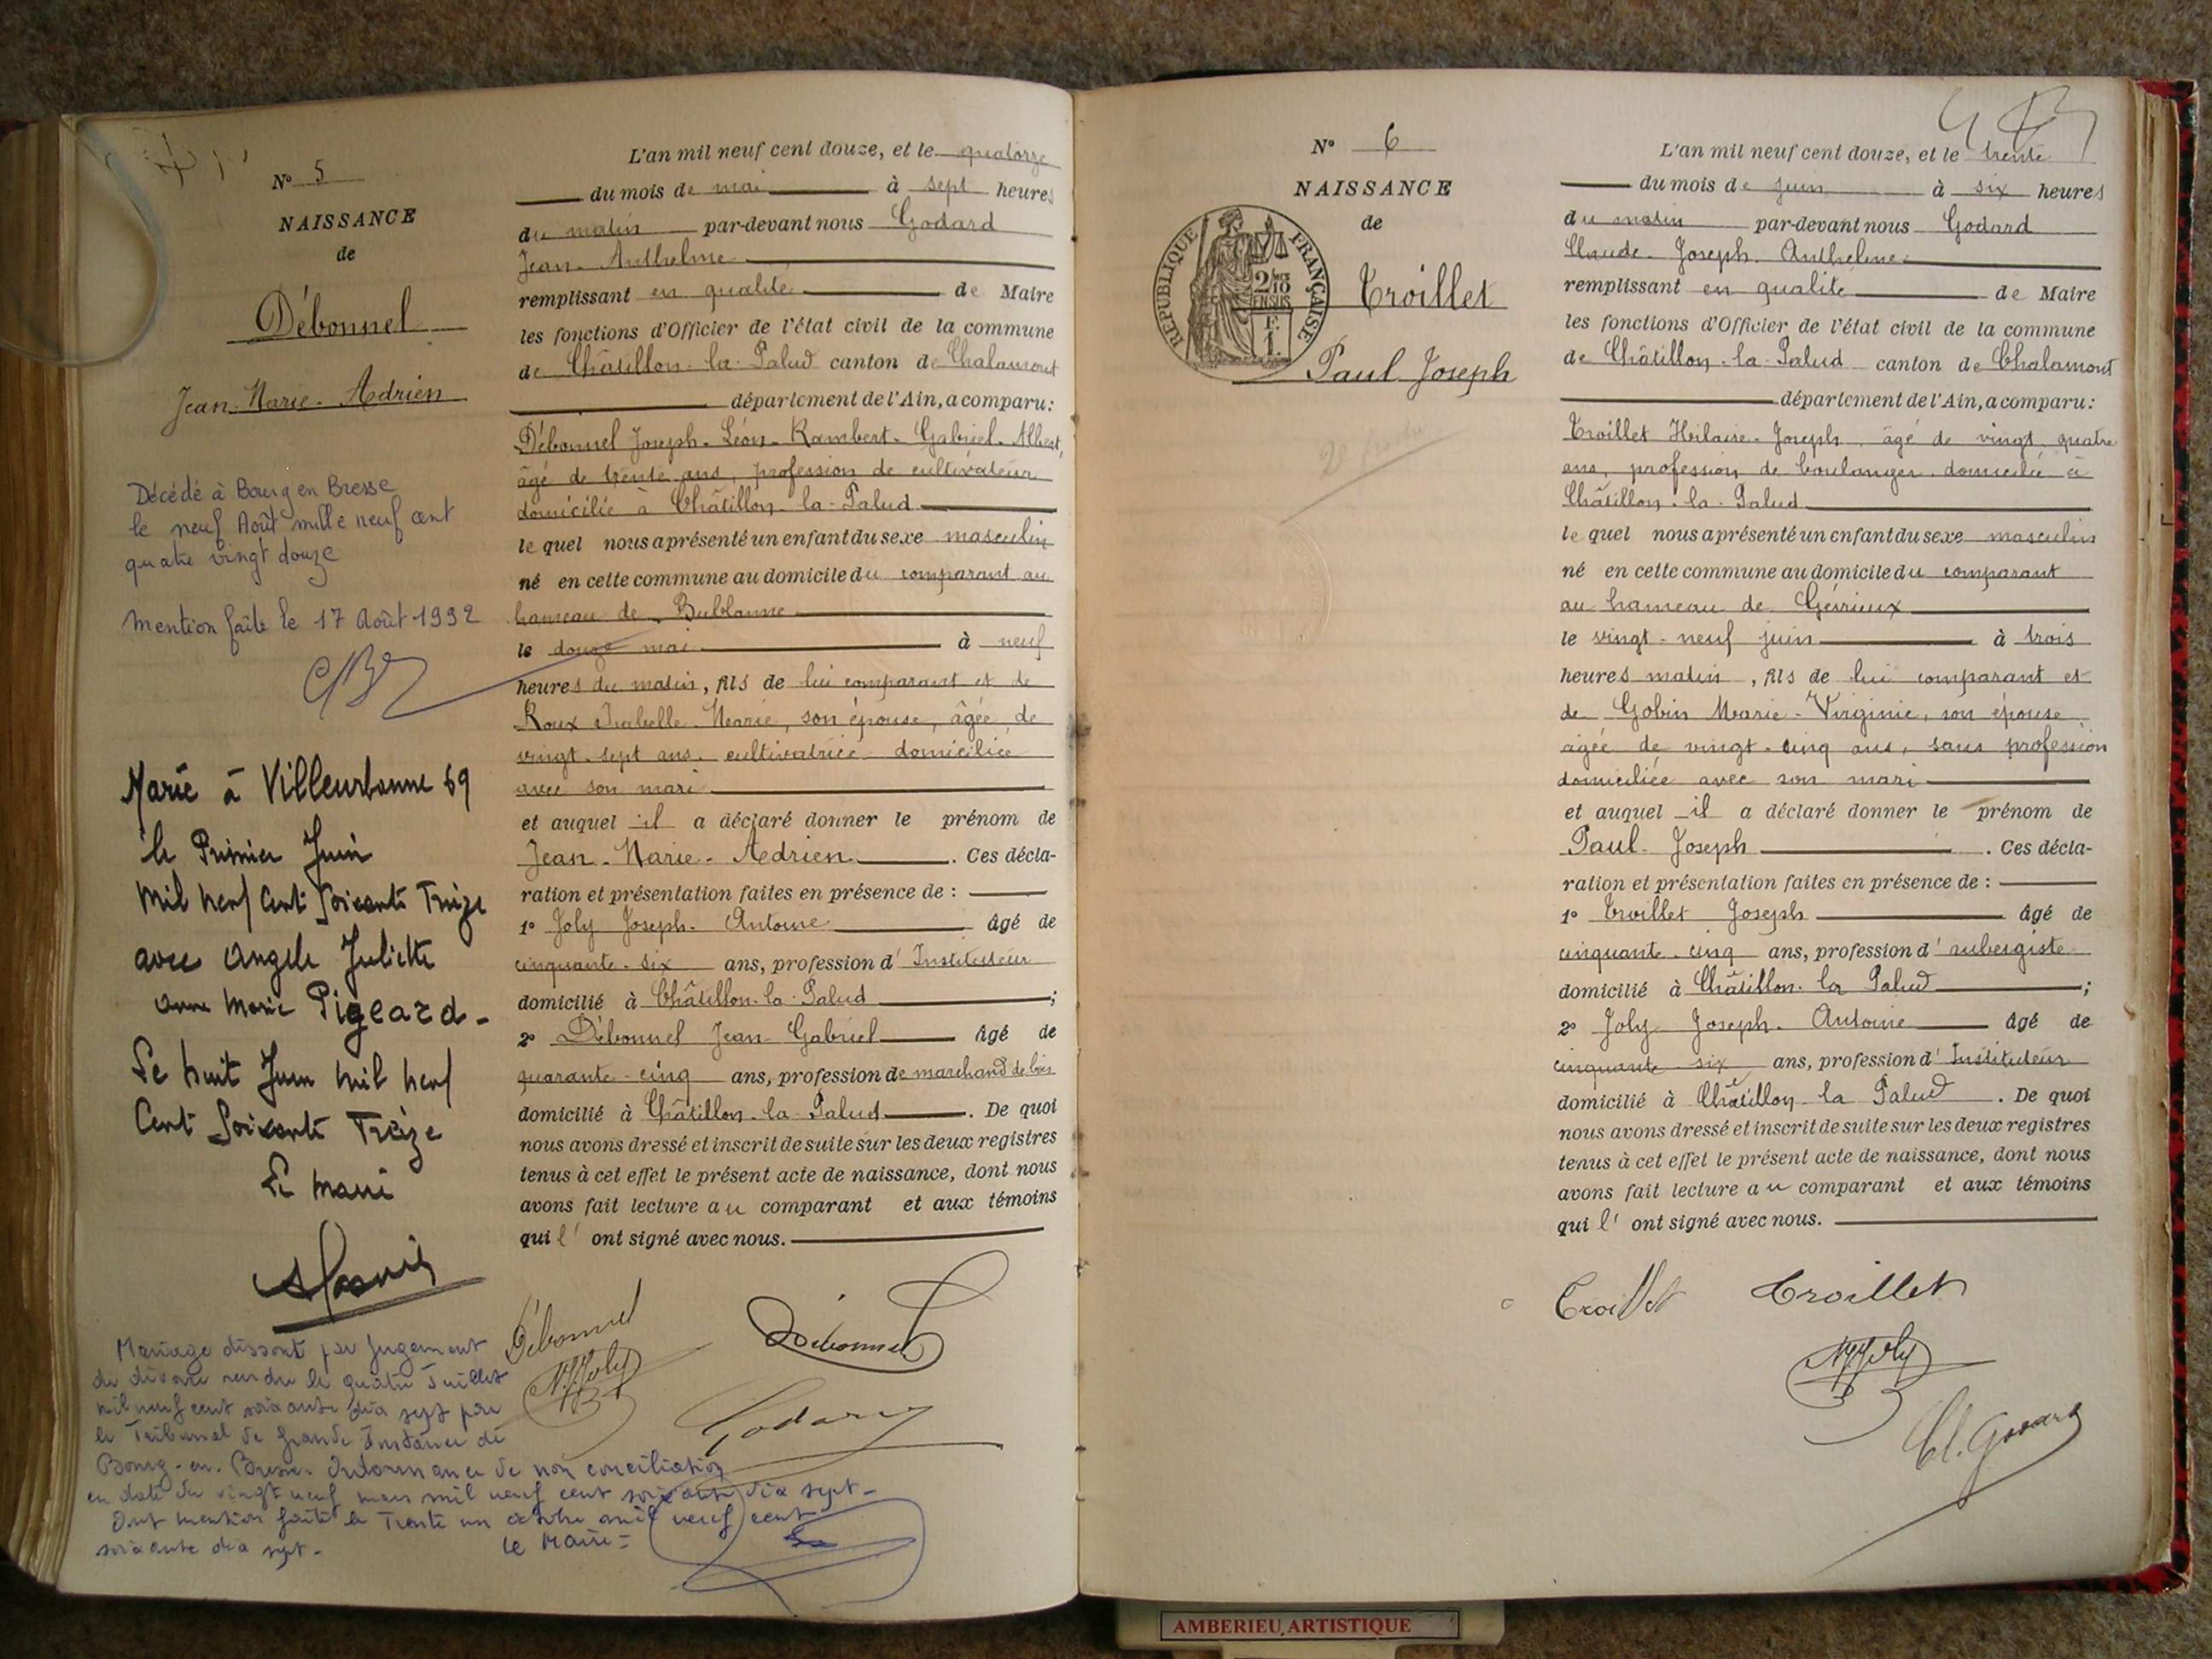 N° 5
NAISSANCE
de
Débonnel
Jean-Marie-Adrien
Décédé à Bourg en Bresse
le neuf Août mille neuf cent
quatre vingt douze
Mention faite le 17 Août 1992
Marié à Villeurbanne 69
le Premier Juin
mil neuf Cent Soixante Treize
avec Angèle Juliette
Anne Marie Pigeard-
Le huit Juin mil neuf
Cent Soixante Treize
Le maire
Mariage dissout par jugement
de divorce rendu le quatre Juillet
mil neuf cent soixante dix sept par
le Tribunal de Grande Instance de
Bourg-en-Bresse. Ordonnance de non conciliation
en date du vingt neuf mars mil neuf cent soixante dix sept-
Dont mention faite le Trente un octobre mil neuf cent
soixante dix sept-
Le Maire=
L'an mil neuf cent douze, et le quatorze
du mois de mai à sept heures
du matin par-devant nous Godard
Jean-Anthelme
remplissant en qualité de Maire
les fonctions d'Officier de l'état civil de la commune
de Châtillon-la-Palud canton de Chalamont
département de l'Ain, a comparu:
Débonnel Joseph-Léon-Rambert-Gabriel-Albert,
âgé de trente ans, profession de cultivateur
domicilié à Châtillon-la-Palud
lequel nous a présenté un enfant du sexe masculin
né en cette commune au domicile du comparant au
hameau de Bublanne
le douze mai à neuf
heures du matin, fils de lui comparant et de
Roux Isabelle-Marie, son épouse, âgée de
vingt-sept ans, cultivatrice domiciliée
avec son mari
et auquel il a déclaré donner le prénom de
Jean-Marie-Adrien. Ces décla-
ration et présentation faites en présence de :
1° Joly Joseph-Antoine âgé de
cinquante-six ans, profession d'Instituteur
domicilié à Châtillon-la-Palud;
2° Débonnel Jean-Gabriel âgé de
quarante-cinq ans, profession de marchand de bois
domicilié à Châtillon-la-Palud. De quoi
nous avons dressé et inscrit de suite sur les deux registres
tenus à cet effet le présent acte de naissance, dont nous
avons fait lecture au comparant et aux témoins
qui l'ont signé avec nous.
Débonnel Débonnel
Joly
Godard
N° 6
NAISSANCE
de
RÉPUBLIQUE FRANÇAISE
2/10
EN SUS
F.
1.
Troillet
Paul Joseph
L'an mil neuf cent douze, et le trente
du mois de juin à six heures
du matin par-devant nous Godard
Claude-Joseph-Anthelme
remplissant en qualité de Maire
les fonctions d'Officier de l'état civil de la commune
de Châtillon-la-Palud canton de Chalamont
département de l'Ain, a comparu:
Troillet Hilaire-Joseph, âgé de vingt-quatre
ans, profession de boulanger domicilié à
Châtillon-la-Palud
lequel nous a présenté un enfant du sexe masculin
né en cette commune au domicile du comparant
au hameau de Gévrieux
le vingt-neuf juin à trois
heures matin, fils de lui comparant et
de Gobin Marie-Virginie, son épouse
âgée de vingt-cinq ans, sans profession
domiciliée avec son mari
et auquel il a déclaré donner le prénom de
Paul-Joseph. Ces décla-
ration et présentation faites en présence de :
1° Troillet Joseph âgé de
cinquante-cinq ans, profession d'aubergiste
domicilié à Châtillon-la Palud;
2° Joly Joseph-Antoine âgé de
cinquante-six ans, profession d'Instituteur
domicilié à Châtillon-la Palud. De quoi
nous avons dressé et inscrit de suite sur les deux registres
tenus à cet effet le présent acte de naissance, dont nous
avons fait lecture au comparant et aux témoins
qui l'ont signé avec nous.
Troillet Troillet
Joly
Cl. Godard
AMBERIEU ARTISTIQUE